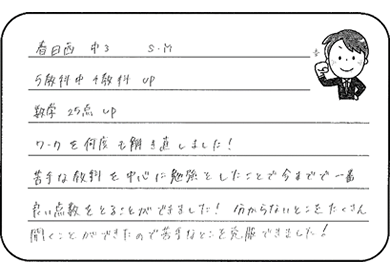 春日西 中3 S.M
5教科中4教科 UP
数学 25点 UP
ワークを何度も解き直しました!
苦手な教科を中心に勉強としたことで今までで一番
良い点数をとることができました! 分からないとこをたくさん
聞くことができたので苦手なとこを克服できました!